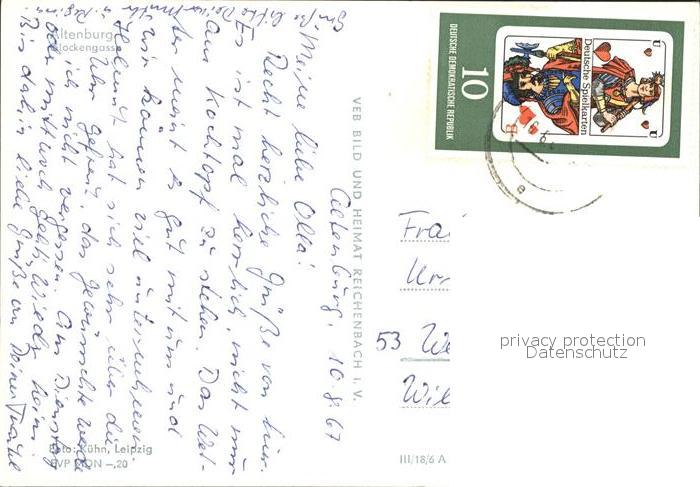 Altenburg, 10.8.67
Meine liebe Olla!
Recht herzliche Grüße von hier.
Es ist mal herrlich, nicht nur
am Kochtopf zu stehen. Das Wet-
ter meint es gut mit uns und
wir können viel unternehmen.
hat sich sehr über die
Uhr gefreut, das gewünschte werde
ich nicht vergessen. Am Dienstag
oder Mittwoch geht's wieder heim.
Bis dahin liebe Grüße von Deiner
Altenburg
Glockengasse
Foto: Kühn, Leipzig
EVP MDN –,20
VEB BILD UND HEIMAT REICHENBACH I. V.
III/18/6 A
DEUTSCHE DEMOKRATISCHE REPUBLIK
10
Deutsche Spielkarten
U
U
53 We
Wil
privacy protection
Datenschutz